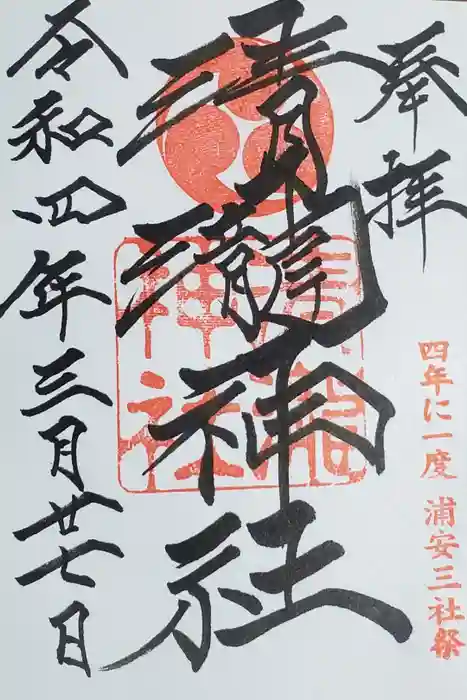 奉拝
四年に一度 浦安三社祭
清瀧神社
清瀧
神社
令和四年三月廿七日